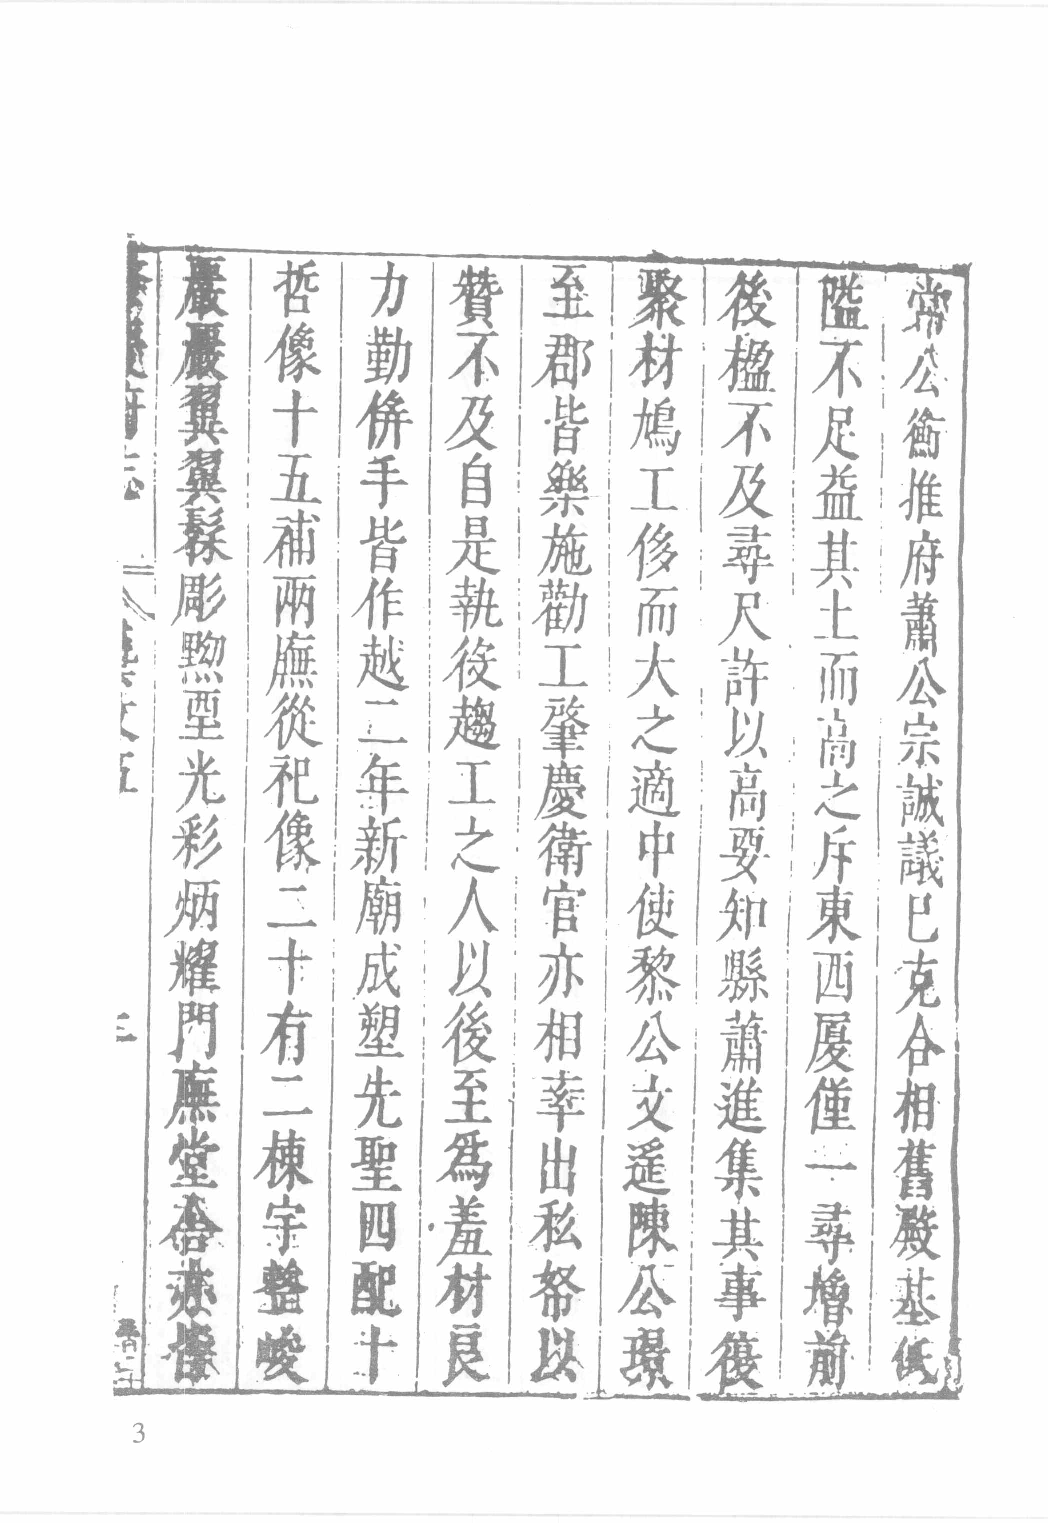 常公衡推府蕭公宗誠議已克合相舊殿基低
隘不足益其土而高之斥東西厦僅一尋增前
後楹不及尋尺許以高要知縣蕭進集其事復
聚材鳩工侈而大之適中使黎公文遥陳公瓌
至郡皆樂施勸工肇慶衛官亦相率出私帑以
贊不及自是執役趨工之人以後至爲羞材良
力勤併手皆作越二年新廟成塑先聖四配十
哲像十五補兩廡從祀像二十有二棟宇整峻
嚴嚴翼翼髹彫黝堊光彩炳耀門廡堂舍亦皆
藝文五
三
3